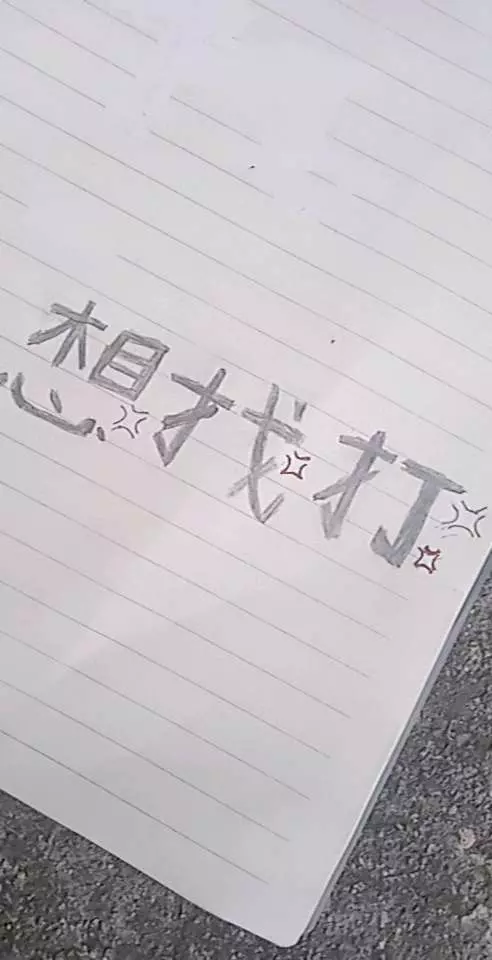 想找打